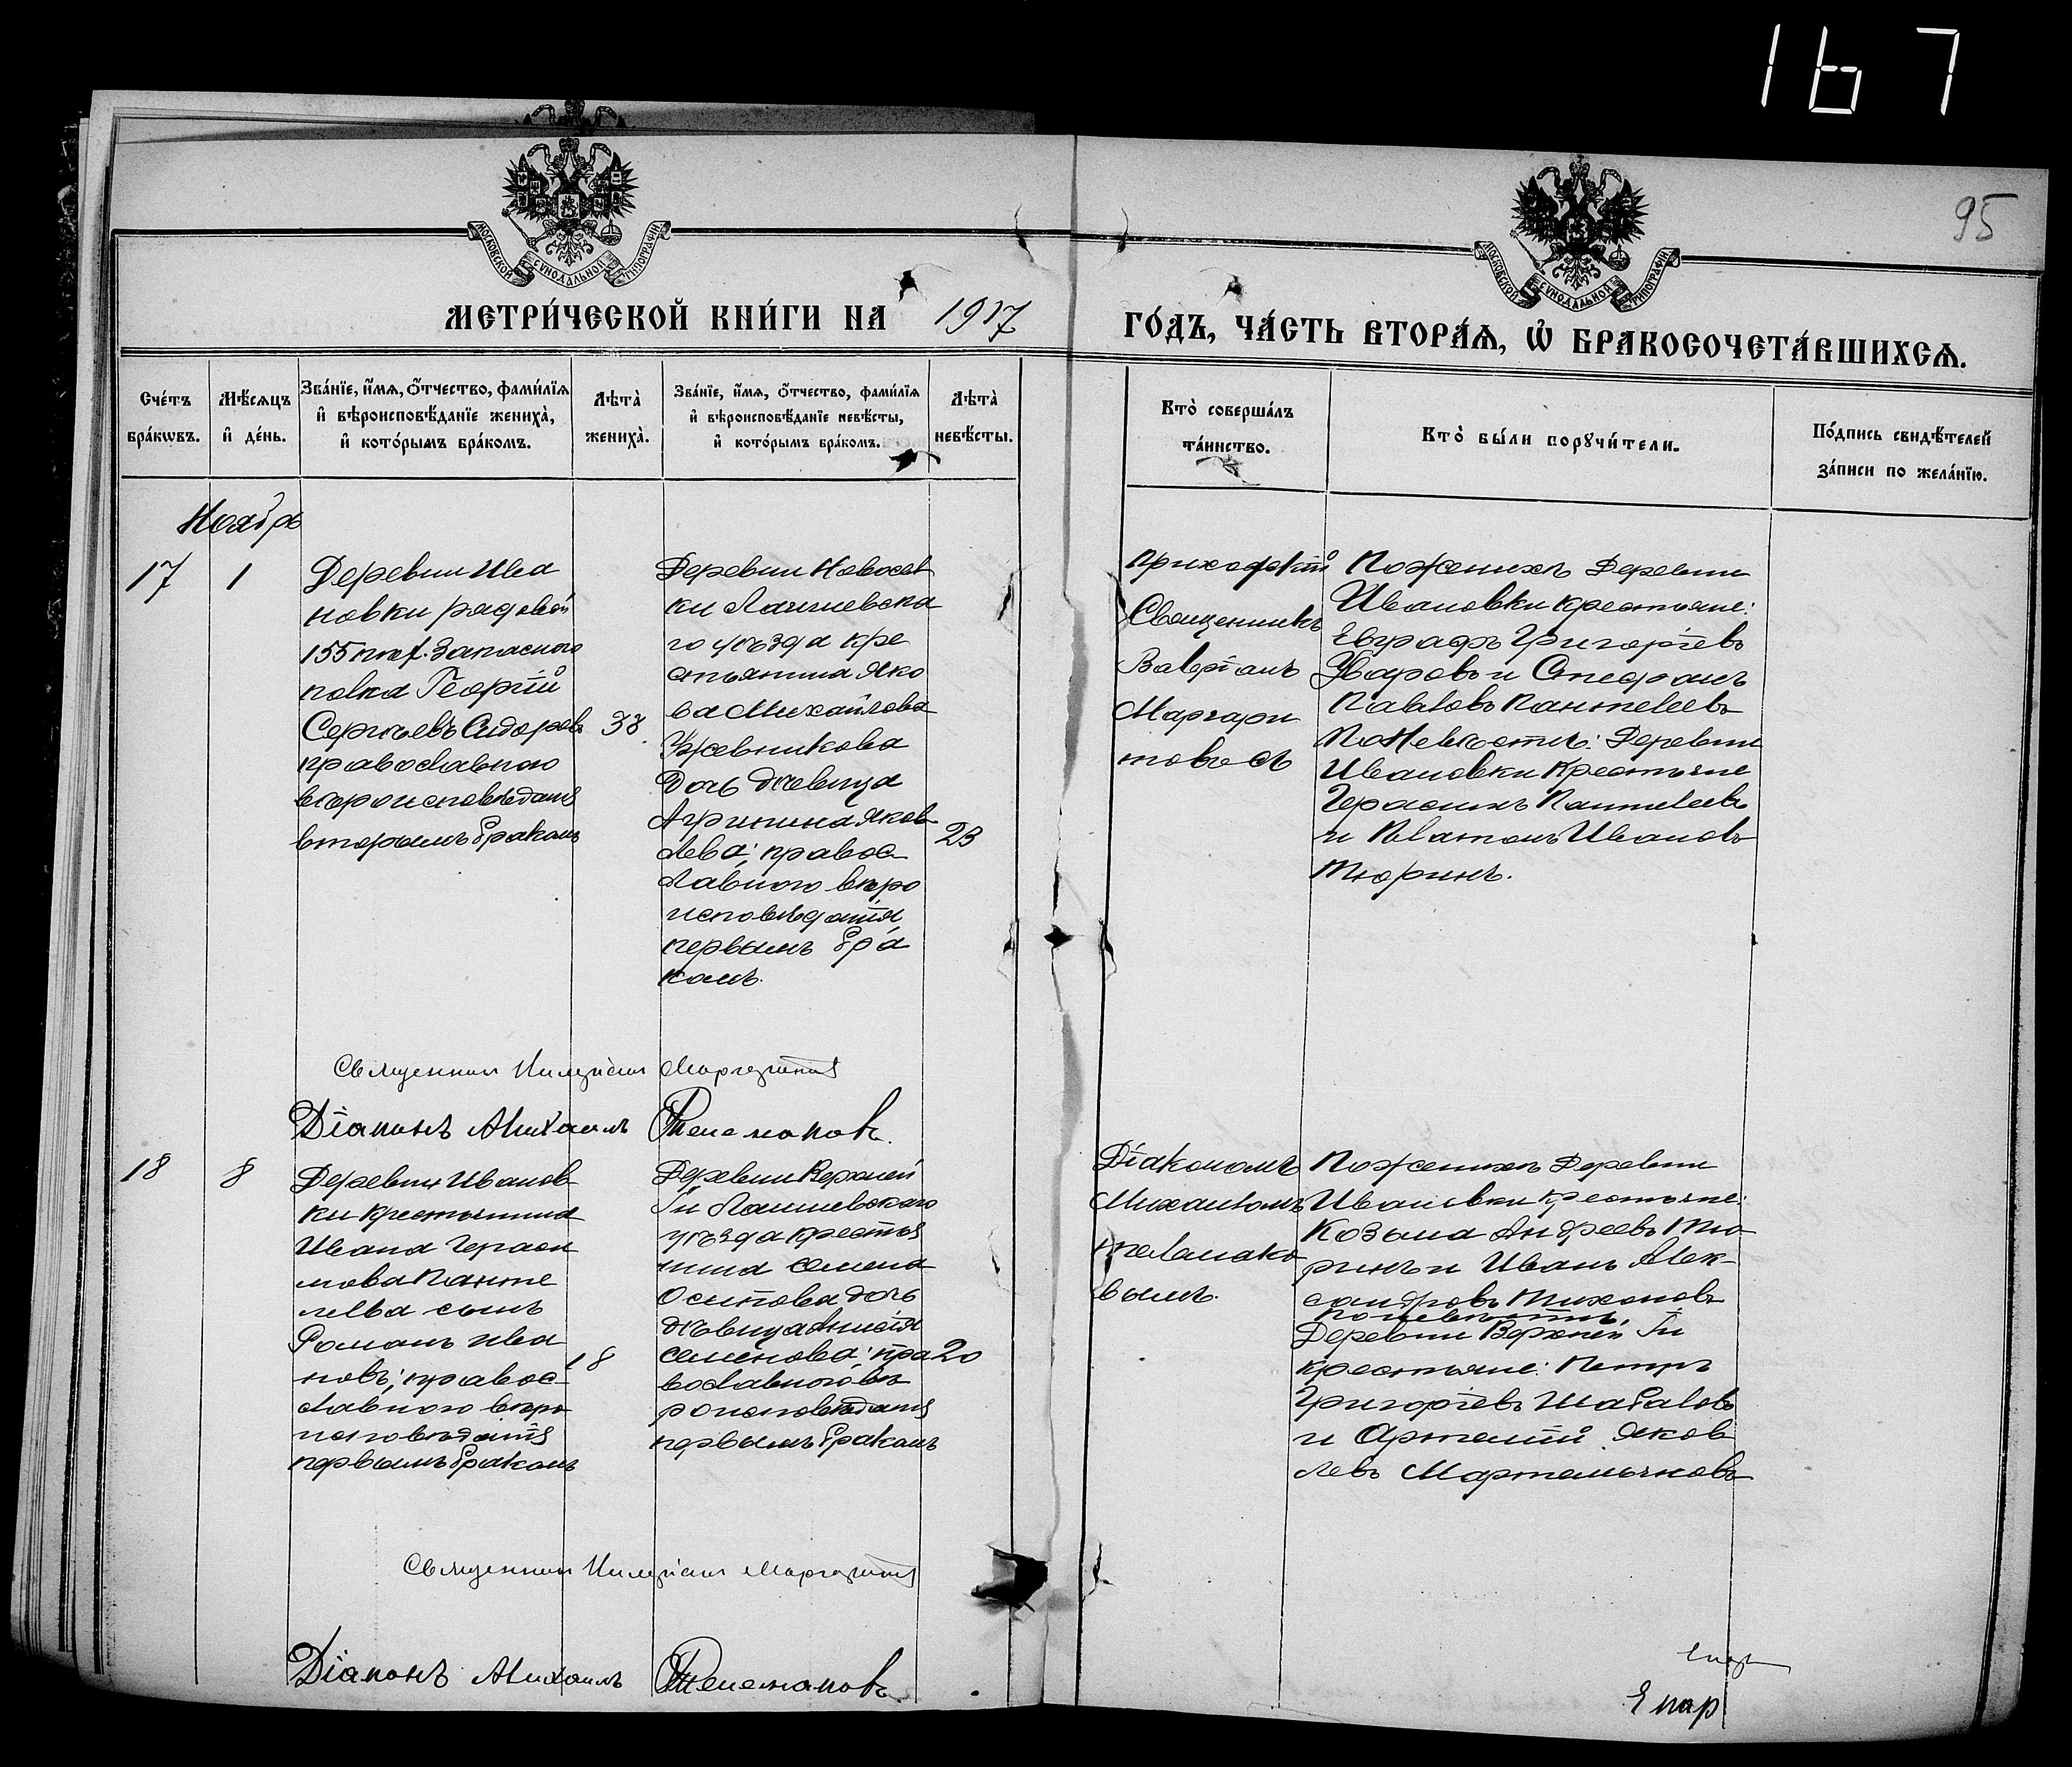 167
95
МОСКОВСКОЙ СУНОДАЛЬНОЙ ТИПОГРАФІИ
МОСКОВСКОЙ СУНОДАЛЬНОЙ ТИПОГРАФІИ
МЕТРИ́ЧЕСКОЙ КНИ́ГИ НА 1917
ГО́ДЪ, ЧА́СТЬ ВТОРА́Ѧ, Ѽ БРАКОСОЧЕТА́ВШИХСѦ.
Сче́тъ
бра́кѡвъ.
Мѣ́сѧцъ
и҆ де́нь.
Зва́нїе, и҆́мѧ, ѻ҆́тчество, фами́лїѧ
и҆ вѣроисповѣ́данїе жениха̀,
и҆ кото́рымъ бра́комъ.
Лѣта̀
жениха̀.
Зва́нїе, и҆́мѧ, ѻ҆́тчество, фами́лїѧ
и҆ вѣроисповѣ́данїе невѣ́сты,
и҆ кото́рымъ бра́комъ.
Лѣта̀
невѣ́сты.
Кто̀ соверша́лъ
та́инство.
Кто̀ бы́ли порꙋчи́тели.
По́дпись свидѣ́телей
за́писи по жела́нїю.
Ноябрь
17
1
Деревни Ива
новки рядовой
155 пех. Запасного
полка Георгій
Сергѣевъ Сидоровъ
православного
вѣроисповѣданія
вторымъ бракомъ
33
Деревни Новосел
ки Лаишевска
го уѣзда кре
стьянина Яко
ва Михайлова
дочь дѣвица
Агрипина Яков
лева; правос
лавного вѣро
исповѣданія
первымъ бра
комъ.
23
Приходскій
Священникъ
Валеріанъ
Маргари
товъ съ
По женихѣ Деревни
Ивановки крестьяне:
Евграфъ Григоріевъ
Уваровъ и Стефанъ
Павловъ Пантелеевъ
По Невѣстѣ: Деревни
Ивановки Крестьяне
Герасимъ Пантелеевъ
и Платонъ Ивановъ
Тюринъ.
Священник Маргаритов
Діаконъ Михаилъ
18
8
Деревни Иванов
ки крестьянина
Ивана Гераси
мова Панте
леева сынъ
Романъ Ива
новъ; правос
лавного вѣро
исповѣданія
первымъ бракомъ
18
Деревни Верхней
Ти Лаишевского
уѣзда крестья
нина Семена
Осипова дочь
дѣвица Анисія
Семенова; пра
вославного вѣ
роисповѣданія
первымъ бракомъ
20
Діакономъ
Михаиломъ
вымъ.
По женихѣ Деревни
Ивановки крестьяне:
Козьма Андреевъ Тю
ринъ и Иванъ Алек
сандровъ Тихоновъ
По невѣстѣ,
Деревни Верхней Ти
крестьяне: Петръ
Григоріевъ Шабаловъ
и Артемій Яков
левъ Мартемьяновъ
Священник Маргаритов
Діаконъ Михаилъ
Епар